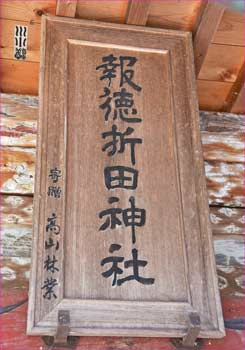 報徳折田神社
寄贈 高山林業